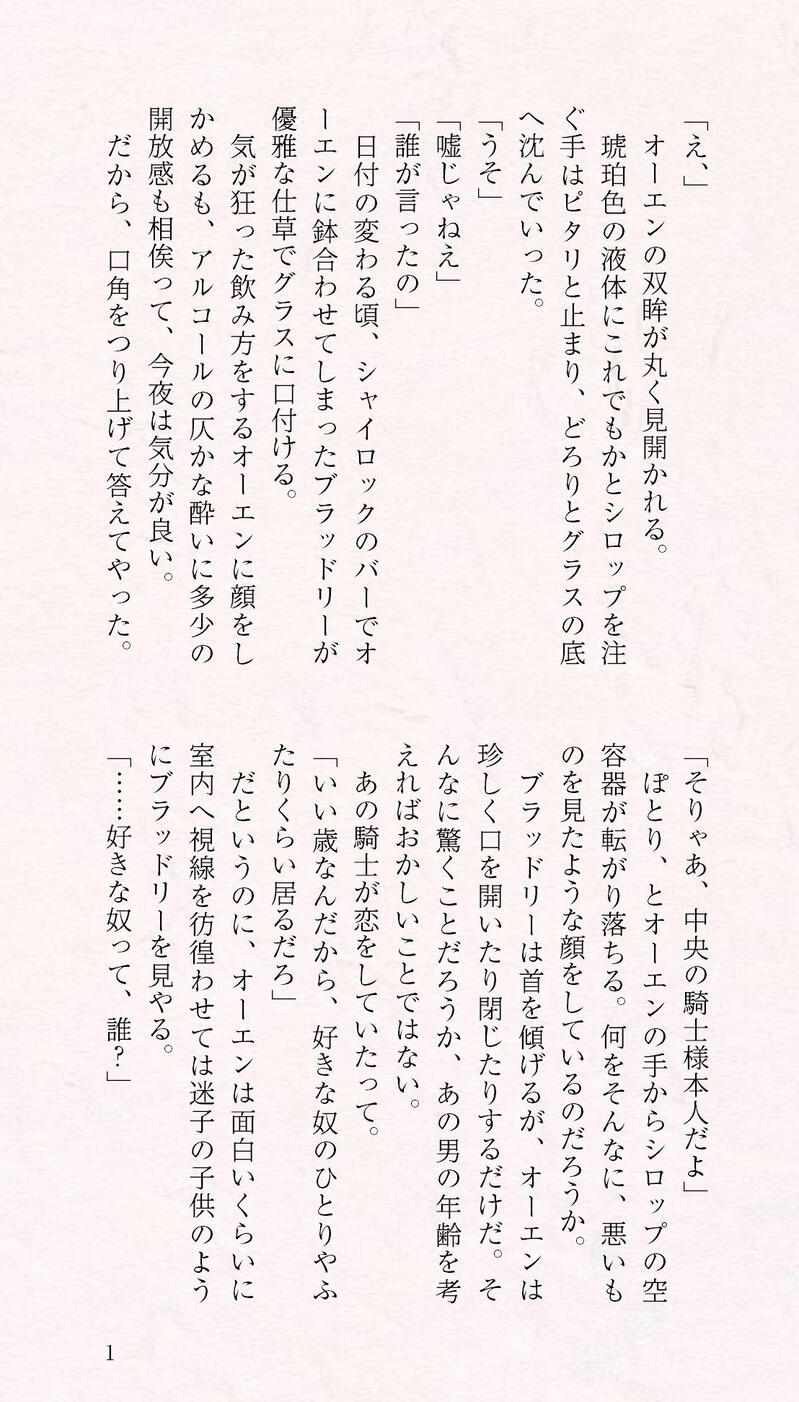 「え、」
　オーエンの双眸が丸く見開かれる。
　琥珀色の液体にこれでもかとシロップを注
ぐ手はピタリと止まり、どろりとグラスの底
へ沈んでいった。
「うそ」
「嘘じゃねえ」
「誰が言ったの」
　日付の変わる頃、シャイロックのバーでオ
ーエンに鉢合わせてしまったブラッドリーが
優雅な仕草でグラスに口付ける。
　気が狂った飲み方をするオーエンに顔をし
かめるも、アルコールの仄かな酔いに多少の
開放感も相俟って、今夜は気分が良い。
　だから、口角をつり上げて答えてやった。
「そりゃあ、中央の騎士様本人だよ」
　ぽとり、とオーエンの手からシロップの空
容器が転がり落ちる。何をそんなに、悪いも
のを見たような顔をしているのだろうか。
　ブラッドリーは首を傾げるが、オーエンは
珍しく口を開いたり閉じたりするだけだ。そ
んなに驚くことだろうか、あの男の年齢を考
えればおかしいことではない。
　あの騎士が恋をしていたって。
「いい歳なんだから、好きな奴のひとりやふ
たりくらい居るだろ」
　だというのに、オーエンは面白いくらいに
室内へ視線を彷徨わせては迷子の子供のよう
にブラッドリーを見やる。
「……好きな奴って、誰？」
1